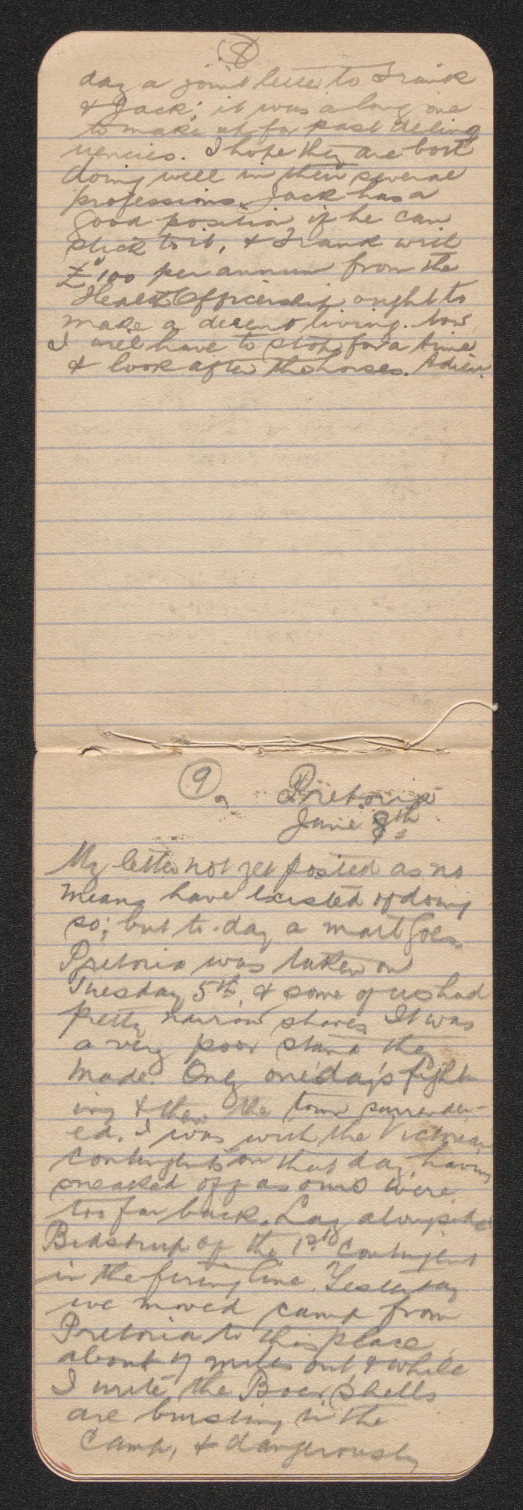 8
day a joint letter to Frank
& Jack; it was a long one
to make up for past delinq
uencies. I hope they are both
doing well in their several
professions. Jack has a
good position if he can
stick to it, & Frank with
£100 per annum from the
Health Officership ought to
make a decent living. Now
I will have to stop for a time
& look after the horses. Adieu.
9. Pretoria
June 8th
My letter not yet posted as no
means have existed of doing
so; but to-day a mail goes.
Pretoria was taken on
Tuesday 5th, & some of us had
pretty narrow shaves. It was
a very poor stand they
made. Only one day's fight-
ing & then the town surrender-
ed. I was with the Victorian
Contingents on that day, having
sneaked off as ours were
too far back. Lay alongside
Bidstrup of the 1st Contingent
in the firing line. Yesterday
we moved camp from
Pretoria to this place
about 7 miles out & while
I write the Boer shells
are bursting in the
camp, & dangerously